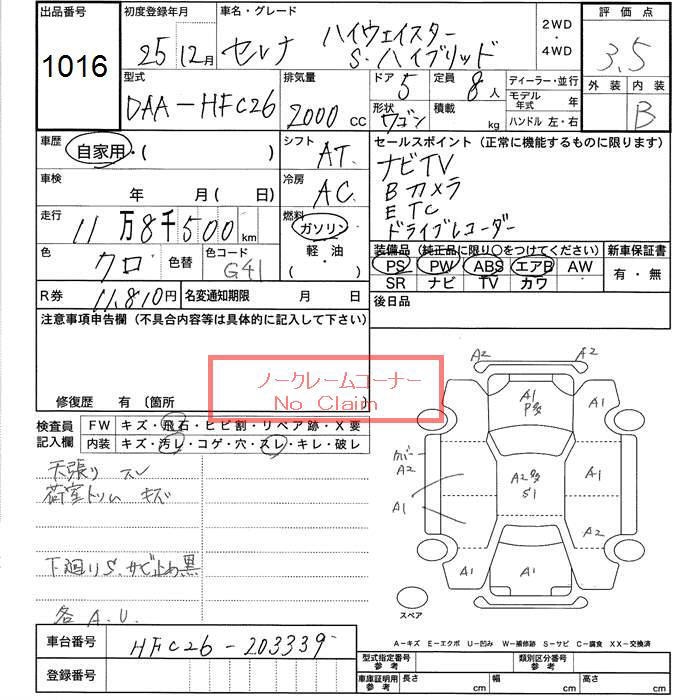 出品番号 1016
初度登録年月 25 12月
車名・グレード セレナ ハイウェイスター S・ハイブリッド
2WD・4WD
評価点 3.5
外装 内装 B
型式 DAA-HFC26
排気量 2000 CC
ドア 5 定員 8人
形状 ワゴン 積載 kg
ディーラー・並行
モデル年式 年
ハンドル 左・右
車歴 自家用・( )
シフト AT
車検 年 月( 日)
冷房 AC
走行 11万8千500km
燃料 ガソリン・軽油・( )
色 クロ 色替 色コード G41
R券 11,810円 名変通知期限 月 日
セールスポイント(正常に機能するものに限ります)
ナビTV
Bカメラ
ETC
ドライブレコーダー
装備品(純正品に限り〇をつけてください) 新車保証書
PS PW ABS エアB AW 有・無
SR ナビ TV カワ
後日品
注意事項申告欄(不具合内容等は具体的に記入して下さい)
ノークレームコーナー
No Claim
修復歴 有〔箇所
検査員記入欄
FW キズ・飛石・ヒビ割・リペア跡・X要
内装 キズ・汚レ・コゲ・穴・スレ・キレ・破レ
天張り スレ
荷室トリム キズ
下廻りS.サビ止め黒
各A.U.
A2 A2
A1 P多
A1 A1
カバー A2
A2多 S1
A1
A1
A2
A1 A1 A1
スペア
A-キズ E-エクボ U-凹み W-補修跡 S-サビ C-腐食 XX-交換済
車台番号 HFC26-203339
登録番号
型式指定番号 参考 類別区分番号 参考
車庫証明用 参考 長さ cm 幅 cm 高さ cm